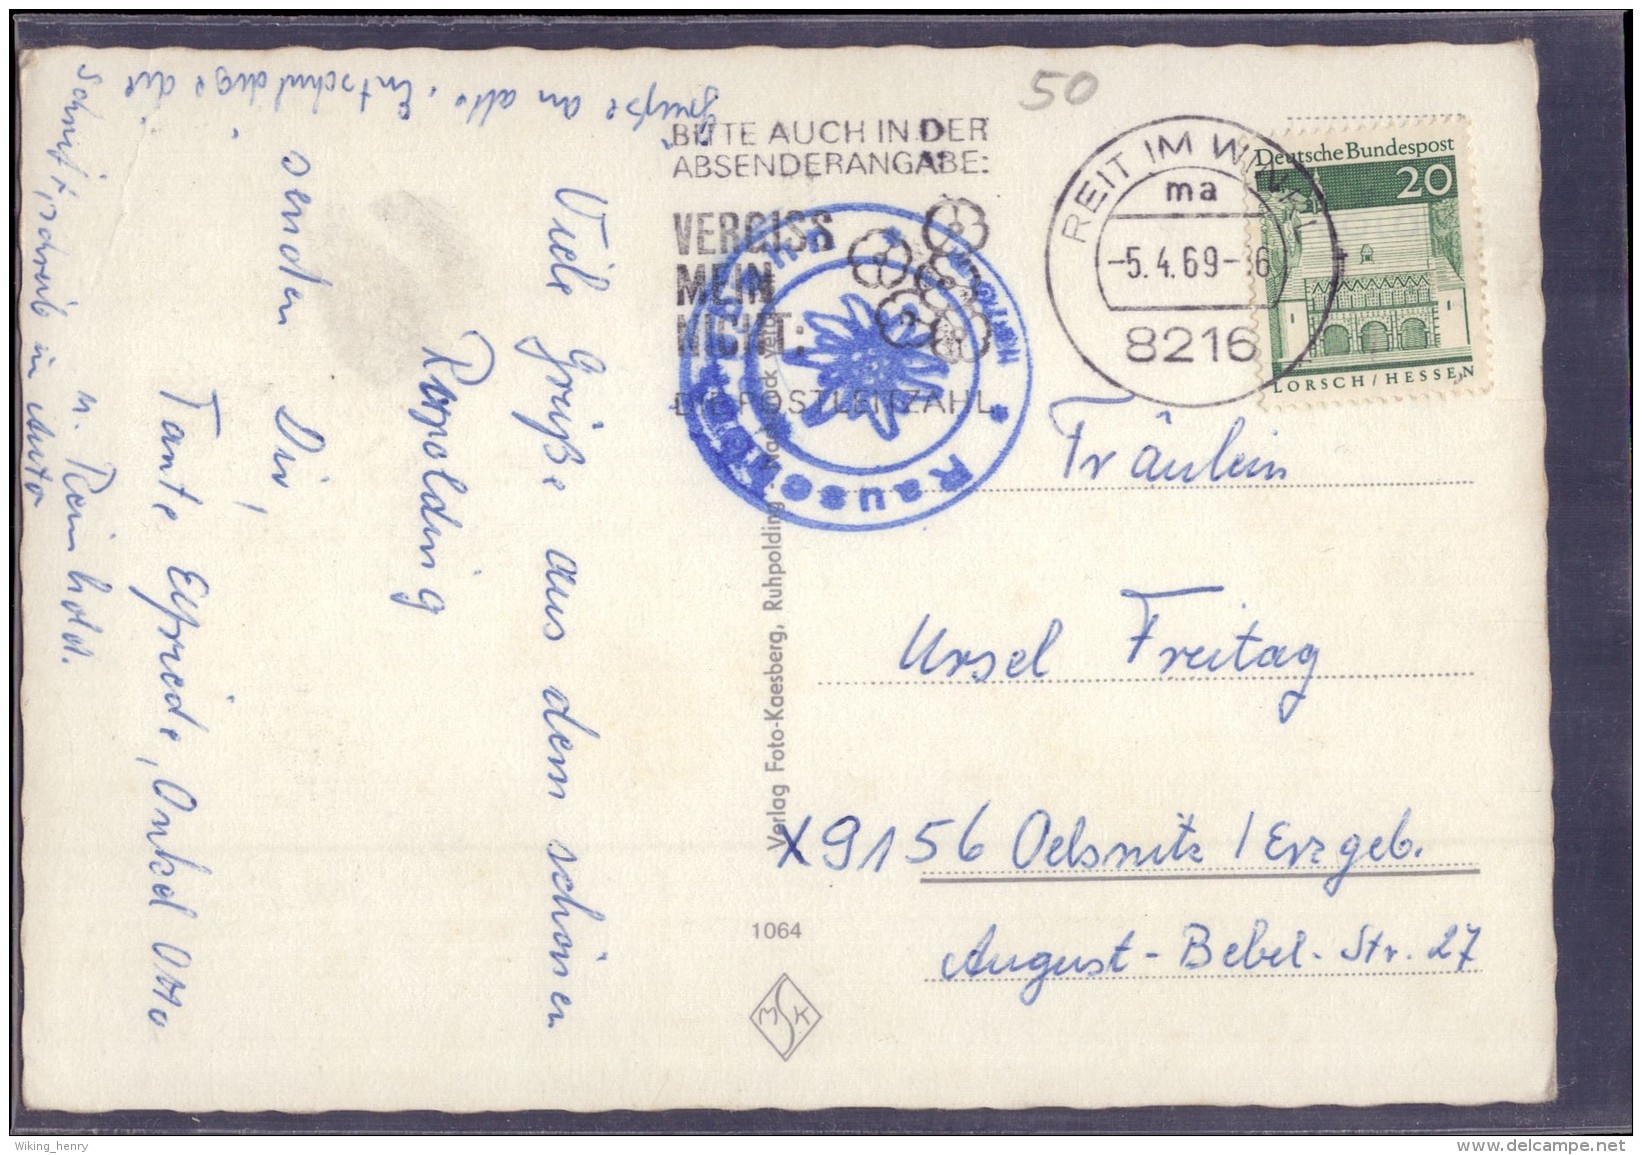 50
BITTE AUCH IN DER
ABSENDERANGABE:
VERGISS
MEIN
NICHT:
DIE POSTLEITZAHL
REIT IM WINKL
ma
-5.4.69-16
8216
Deutsche Bundespost
20
LORSCH/HESSEN
Viele Grüße aus dem schönen
Ruhpolding
senden Dir,
Tante Elfriede, Onkel Otto
u. Reinhold.
Grüße an alle. Entschuldige die
Schrift, schreib in Auto
Verlag Foto-Kaesberg, Ruhpolding
1064
MSK
Fräulein
Ursel Freitag
X9156 Oelsnitz/Erzgeb.
August-Bebel-Str. 27
Wiking_henry
www.delcampe.net